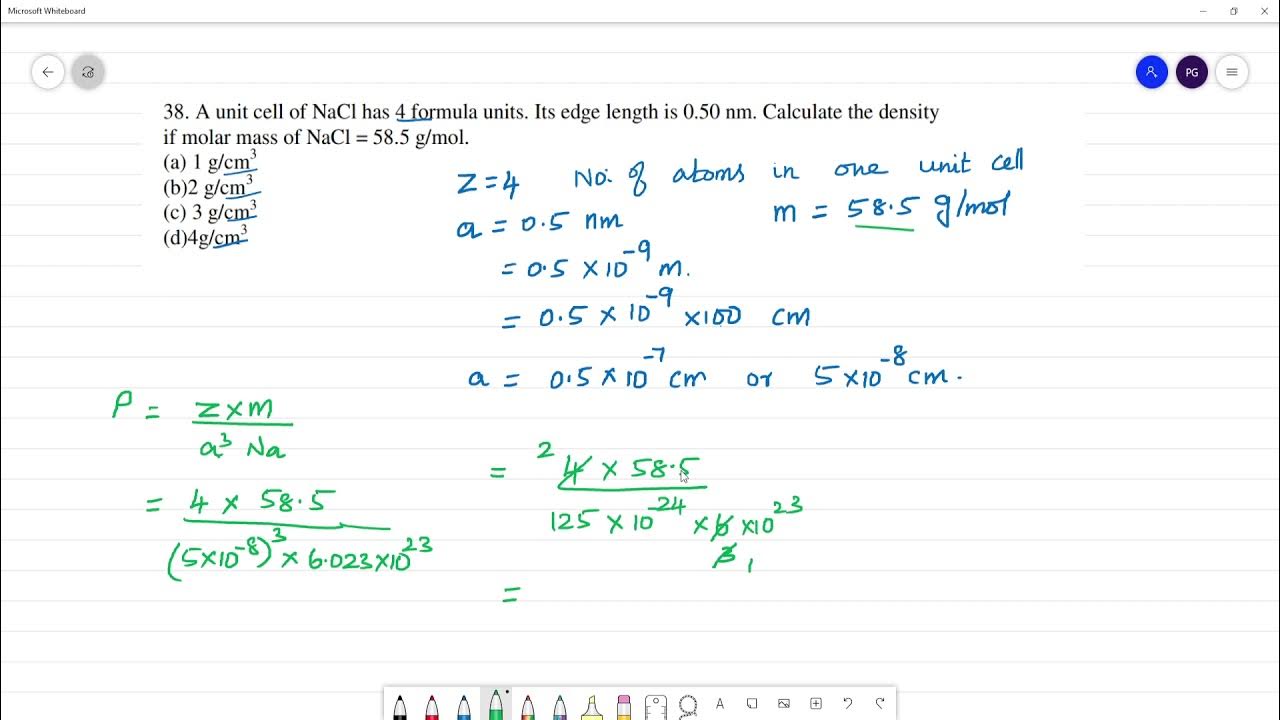 Microsoft Whiteboard
PG
38. A unit cell of NaCl has 4 formula units. Its edge length is 0.50 nm. Calculate the density
if molar mass of NaCl = 58.5 g/mol.
(a) 1 g/cm³
(b)2 g/cm³
(c) 3 g/cm³
(d)4g/cm³
Z = 4 No. of atoms in one unit cell
a = 0.5 nm m = 58.5 g/mol
= 0.5 × 10⁻⁹ m.
= 0.5 × 10⁻⁹ × 100 cm
a = 0.5 × 10⁻⁷ cm or 5 × 10⁻⁸ cm.
ρ = Z × m
a³ Na
= 4 × 58.5
(5×10⁻⁸)³ × 6.023×10²³
= 2 4 × 58.5
125 × 10⁻²⁴ × 6 × 10²³
3 1
=
A